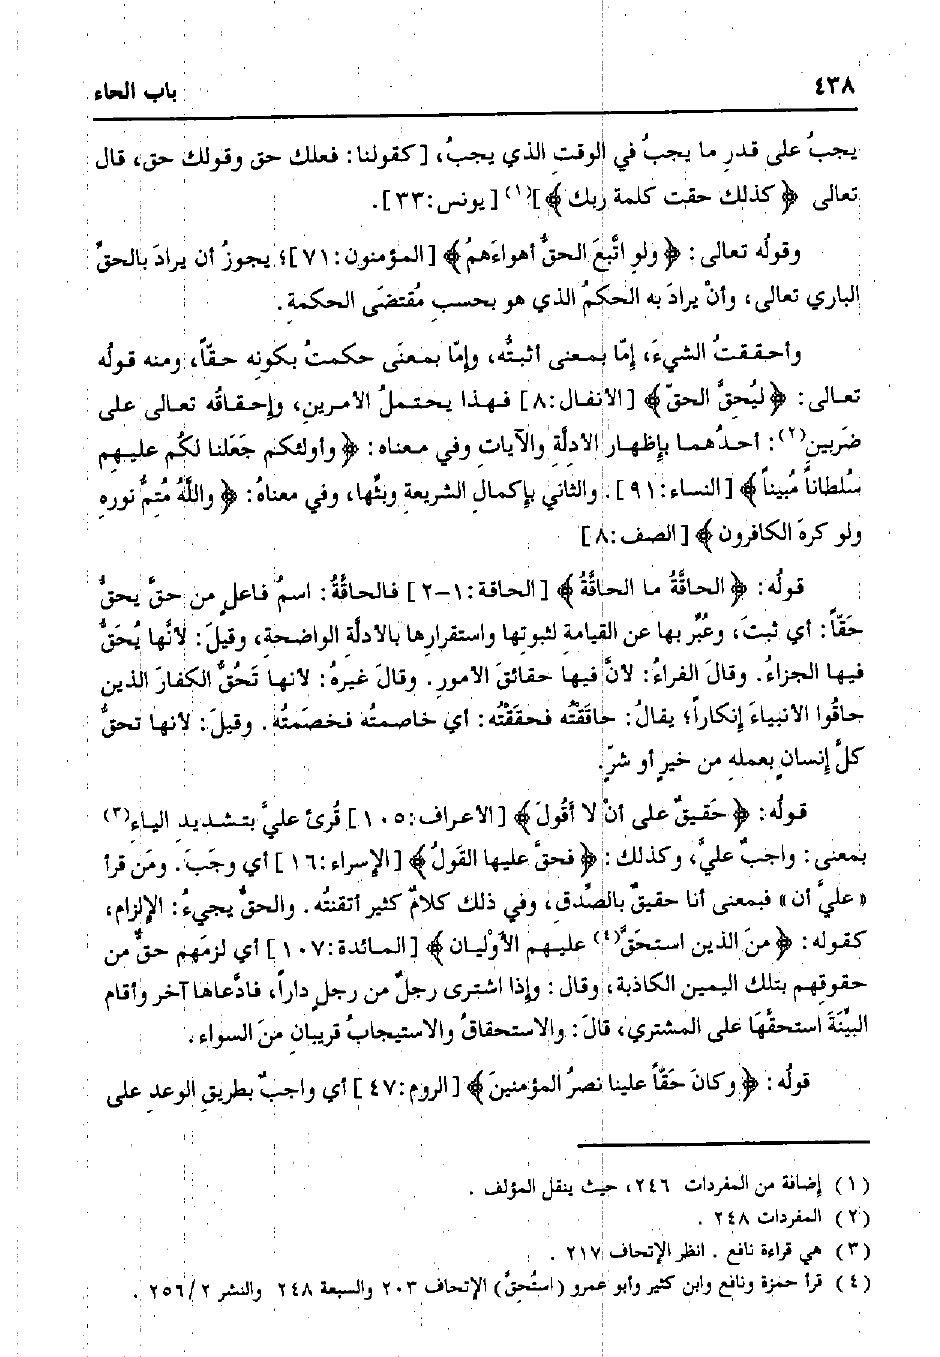 ٤٣٨
باب الحاء
يجبُ على قدرِ ما يجبُ في الوقتِ الذي يجبُ، [كقولنا: فعلك حق وقولك حق، قال
تعالى ﴿كذلك حقت كلمة ربك﴾](١) [يونس:٣٣].
وقولُه تعالى: ﴿ولوِ اتَّبعَ الحقُّ أهواءَهمُ﴾ [المؤمنون:٧١]؛ يجوزُ أن يرادَ بالحقِّ
الباري تعالى، وأنْ يرادَ به الحكمُ الذي هو بحسبِ مُقتضَى الحكمةِ.
وأحققتُ الشيءَ، إمّا بمعنى أثبتُّه، وإمّا بمعنَى حكمتُ بكونِه حقّاً، ومنه قولُه
تعالى: ﴿ليُحِقَّ الحقّ﴾ [الأنفال:٨] فهذا يحتملُ الأمرينِ، وإحقاقُه تعالى على
ضَربين(٢): أحدُهما بإظهارِ الأدلّةِ والآياتِ وفي معناه: ﴿وأولئكم جَعَلنا لكُم عليهِم
سُلطاناً مُبيناً﴾ [النساء:٩١]. والثاني بإكمالِ الشريعةِ وبثِّها، وفي معناهُ: ﴿واللَّهُ مُتِمُّ نورهِ
ولو كرهَ الكافرون﴾ [الصف:٨]
قولُه: ﴿الحاقَّةُ ما الحاقَّةُ﴾ [الحاقة:١-٢] فالحاقَّةُ: اسمُ فاعلٍ من حقَّ يحقُّ
حَقّاً: أي ثبتَ، وعُبِّر بها عن القيامةِ لثبوتِها واستقرارِها بالأدلَّة الواضحة، وقيلَ: لأنَّها يُحَقُّ
فيها الجزاءُ. وقالَ الفراءُ: لأنَّ فيها حقائقَ الأمورِ. وقالَ غيرهُ: لأنها تَحُقُّ الكفارَ الذين
حاقُوا الأنبياءَ إنكاراً؛ يقالُ: حاقَقْتُه فحقَقْتُه: أي خاصمتُه فخصَمتُه. وقيلَ: لأنها تحقُّ
كلَّ إنسانٍ بعملهِ من خيرٍ أو شرّ.
قولُه: ﴿حَقيقٌ على أنْ لا أقُولَ﴾ [الأعراف:١٠٥] قُرئ عليَّ بتشديدِ الياءِ(٣)
بمعنى: واجبٌ عليَّ، وكذلك: ﴿فحقَّ عليها القَولُ﴾ [الإسراء:١٦] أي وجَبَ. ومَن قرأ
«عليَّ أن» فبمعنى أنا حقيقٌ بالصِّدق، وفي ذلك كلامٌ كثير أتقنتُه. والحقُّ يجيءُ: الإلزام،
كقوله: ﴿منَ الذين استحَقَّ(٤) عليهم الأَوْليان﴾ [المائدة:١٠٧] أي لزمَهم حقٌّ من
حقوقِهم بتلك اليمين الكاذبة، وقال: وإذا اشترى رجلٌ من رجلٍ داراً، فادَّعاها آخر وأقام
البيِّنَةَ استحقَّهَا على المشتري، قالَ: والاستحقاقُ والاستيجابُ قريبانِ منَ السواء.
قولُه: ﴿وكانَ حَقّاً علينا نصرُ المؤمنينَ﴾ [الروم:٤٧] أي واجبٌ بطريقِ الوعدِ على
(١) إضافة من المفردات ٢٤٦، حيث ينقل المؤلف.
(٢) المفردات ٢٤٨.
(٣) هي قراءة نافع. انظر الإتحاف ٢١٧.
(٤) قرأ حمزة ونافع وابن كثير وأبو عمرو (استُحِقَّ) الإتحاف ٢٠٣ والسبعة ٢٤٨ والنشر ٢/٢٥٦.